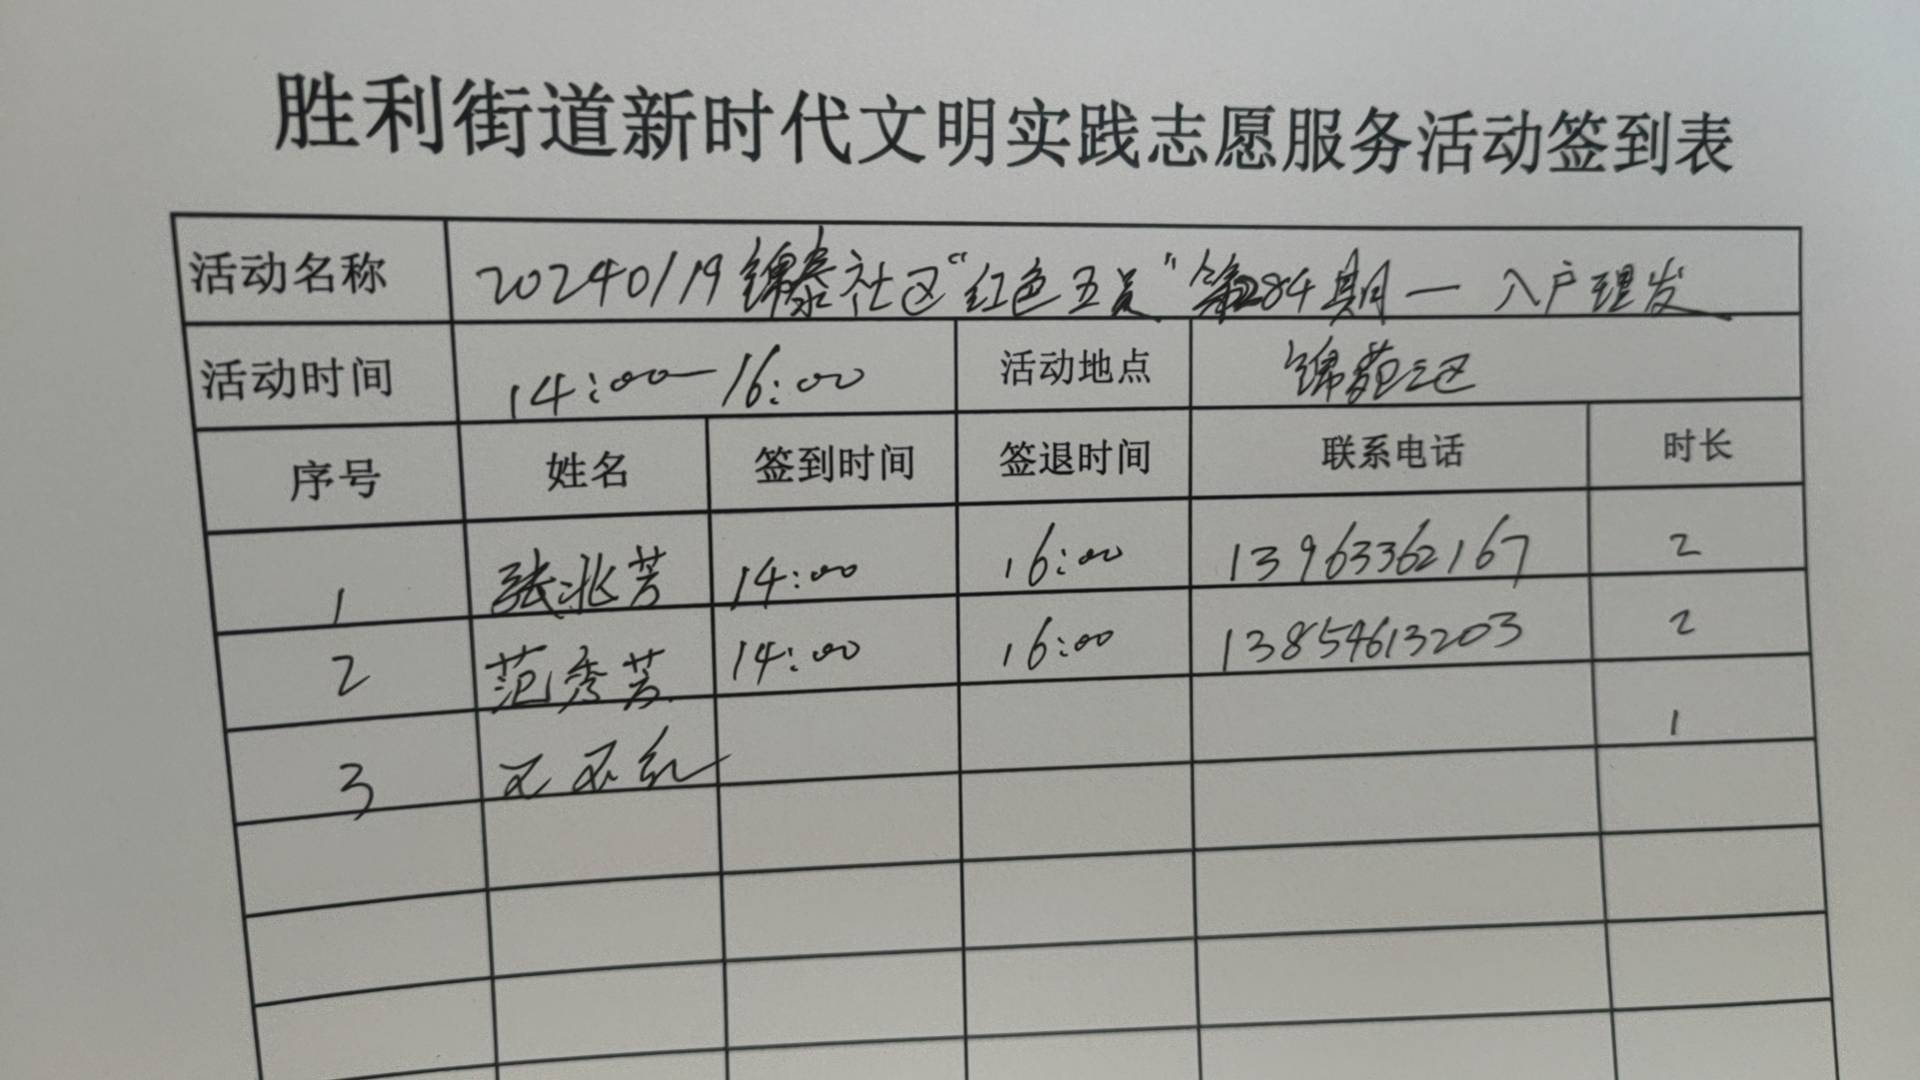 胜利街道新时代文明实践志愿服务活动签到表
活动名称 20240119锦泰社区“红色五员”第284期一入户理发
活动时间 14:00—16:00 活动地点 锦苑三区
序号 姓名 签到时间 签退时间 联系电话 时长
1 张兆芳 14:00 16:00 13963362167 2
2 范秀芳 14:00 16:00 13854613203 2
3 红 1